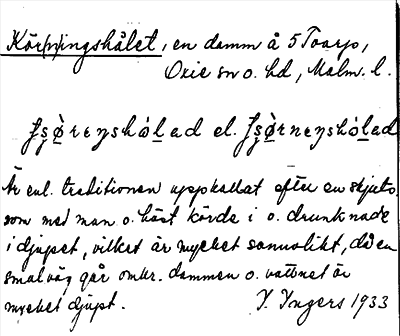 Kör(n)ingshålet, en damm å 5 Toarp,
Oxie sn o. hd, Malm. l.
el.
Är enl. traditionen uppkallat efter en skjuts,
som med man o. häst körde i o. drunknade
i djupet, vilket är mycket sannolikt, då en
smal väg går omkr. dammen o. vattnet är
mycket djupt. I. Ingers 1933